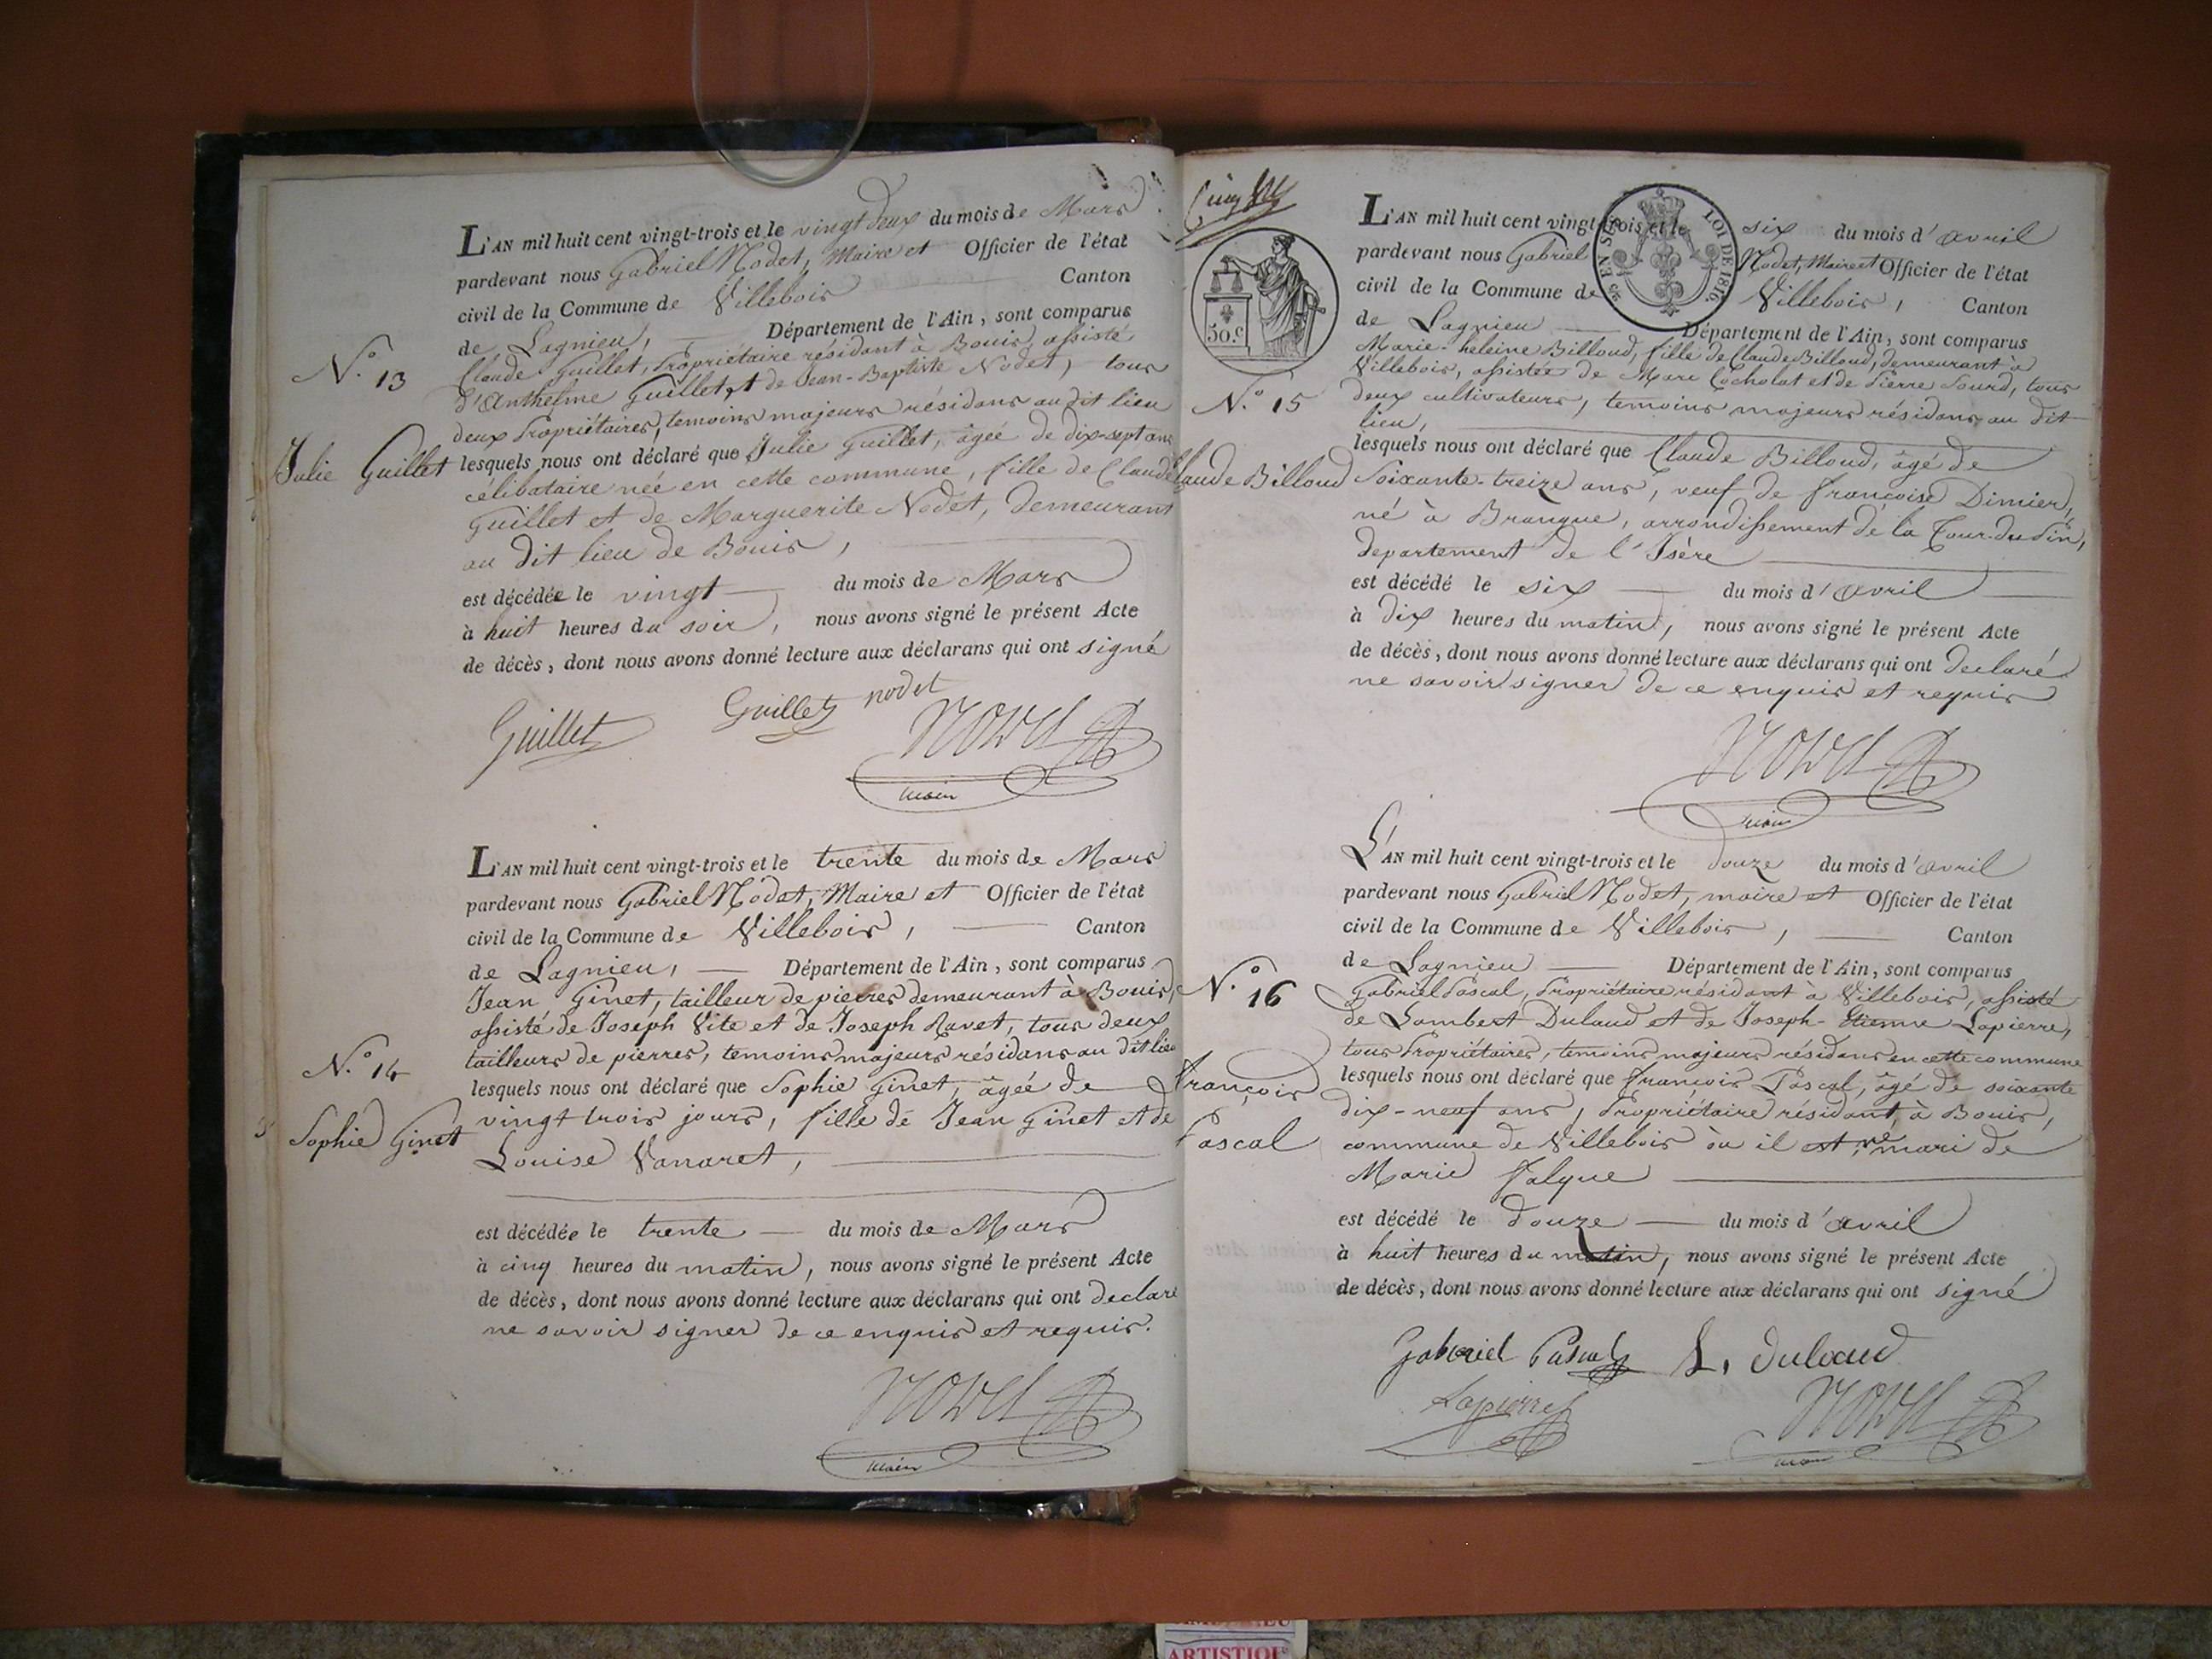 L'AN mil huit cent vingt-trois et le vingt deux du mois de Mars
pardevant nous Gabriel Nodet, Maire et Officier de l'état
civil de la Commune de Villebois Canton
de Lagnieu, Département de l'Ain, sont comparus
Claude Guillet, Propriétaire résidant à Bouis, assisté
N.o 13
d'Anthelme Guillet, et de Jean-Baptiste Nodet, tous
deux Propriétaires, temoins majeurs résidans au dit lieu
Julie Guillet
lesquels nous ont déclaré que Julie Guillet, âgée de dix-sept ans
célibataire née en cette commune, fille de Claude
Guillet et de Marguerite Nodet, demeurant
au dit lieu de Bouis,
est décédée le vingt du mois de Mars
à huit heures du soir, nous avons signé le présent Acte
de décès, dont nous avons donné lecture aux déclarans qui ont signé
Guillet Guillet nodet
Nodet
maire
L'AN mil huit cent vingt-trois et le trente du mois de Mars
pardevant nous Gabriel Nodet, Maire et Officier de l'état
civil de la Commune de Villebois, Canton
de Lagnieu, Département de l'Ain, sont comparus
Jean Ginet, tailleur de pierres demeurant à Bouis,
assisté de Joseph Vite et de Joseph Ravet, tous deux
tailleurs de pierres, temoins majeurs résidans au dit lieu
N.o 14
lesquels nous ont déclaré que Sophie Ginet, âgée de
Sophie Ginet
vingt trois jours, fille de Jean Ginet et de
Louise Vanaret,
est décédée le trente du mois de Mars
à cinq heures du matin, nous avons signé le présent Acte
de décès, dont nous avons donné lecture aux déclarans qui ont declaré
ne savoir signer de ce enquis et requis.
Nodet
maire
EN SUS LOI DE 1816.
50.c
L'AN mil huit cent vingt-trois et le six du mois d'avril
pardevant nous Gabriel Nodet, Maire et Officier de l'état
civil de la Commune de Villebois, Canton
de Lagnieu Département de l'Ain, sont comparus
Marie-heleine Billoud, fille de Claude Billoud, demeurant à
Villebois, assistée de Marc Cocholat et de Pierre Sourd, tous
N.o 15
deux cultivateurs, temoins majeurs résidans au dit
lieu,
Claude Billoud
lesquels nous ont déclaré que Claude Billoud, âgé de
Soixante-treize ans, veuf de françoise Dimier,
né à Brangue, arrondissement de la Tour-du-Pin,
departement de l'Isère
est décédé le six du mois d'avril
à dix heures du matin, nous avons signé le présent Acte
de décès, dont nous avons donné lecture aux déclarans qui ont declaré
ne savoir signer de ce enquis et requis
Nodet
maire
L'AN mil huit cent vingt-trois et le douze du mois d'avril
pardevant nous Gabriel Nodet, maire et Officier de l'état
civil de la Commune de Villebois, Canton
de Lagnieu Département de l'Ain, sont comparus
N.o 16
Gabriel Pascal, Propriétaire résidant à Villebois, assisté
de Lambert Dulaud et de Joseph-Etienne Lapierre,
tous Propriétaires, temoins majeurs résidans en cette commune
François
Pascal
lesquels nous ont déclaré que françois Pascal, âgé de soixante
dix-neuf ans, Propriétaire résidant, à Bouis,
commune de Villebois où il est né, mari de
Marie falque
est décédé le douze du mois d'avril
à huit heures du matin, nous avons signé le présent Acte
de décès, dont nous avons donné lecture aux déclarans qui ont signé
Gabriel Pascal L. dulaud
Lapierre Nodet
maire
ARTISTIQUE